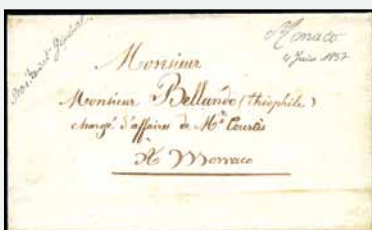 Monaco
4 Juin 1837
Monsieur
Monsieur Bellando (théophile)
chargé d'affaires de Mr Courtès
A Monaco